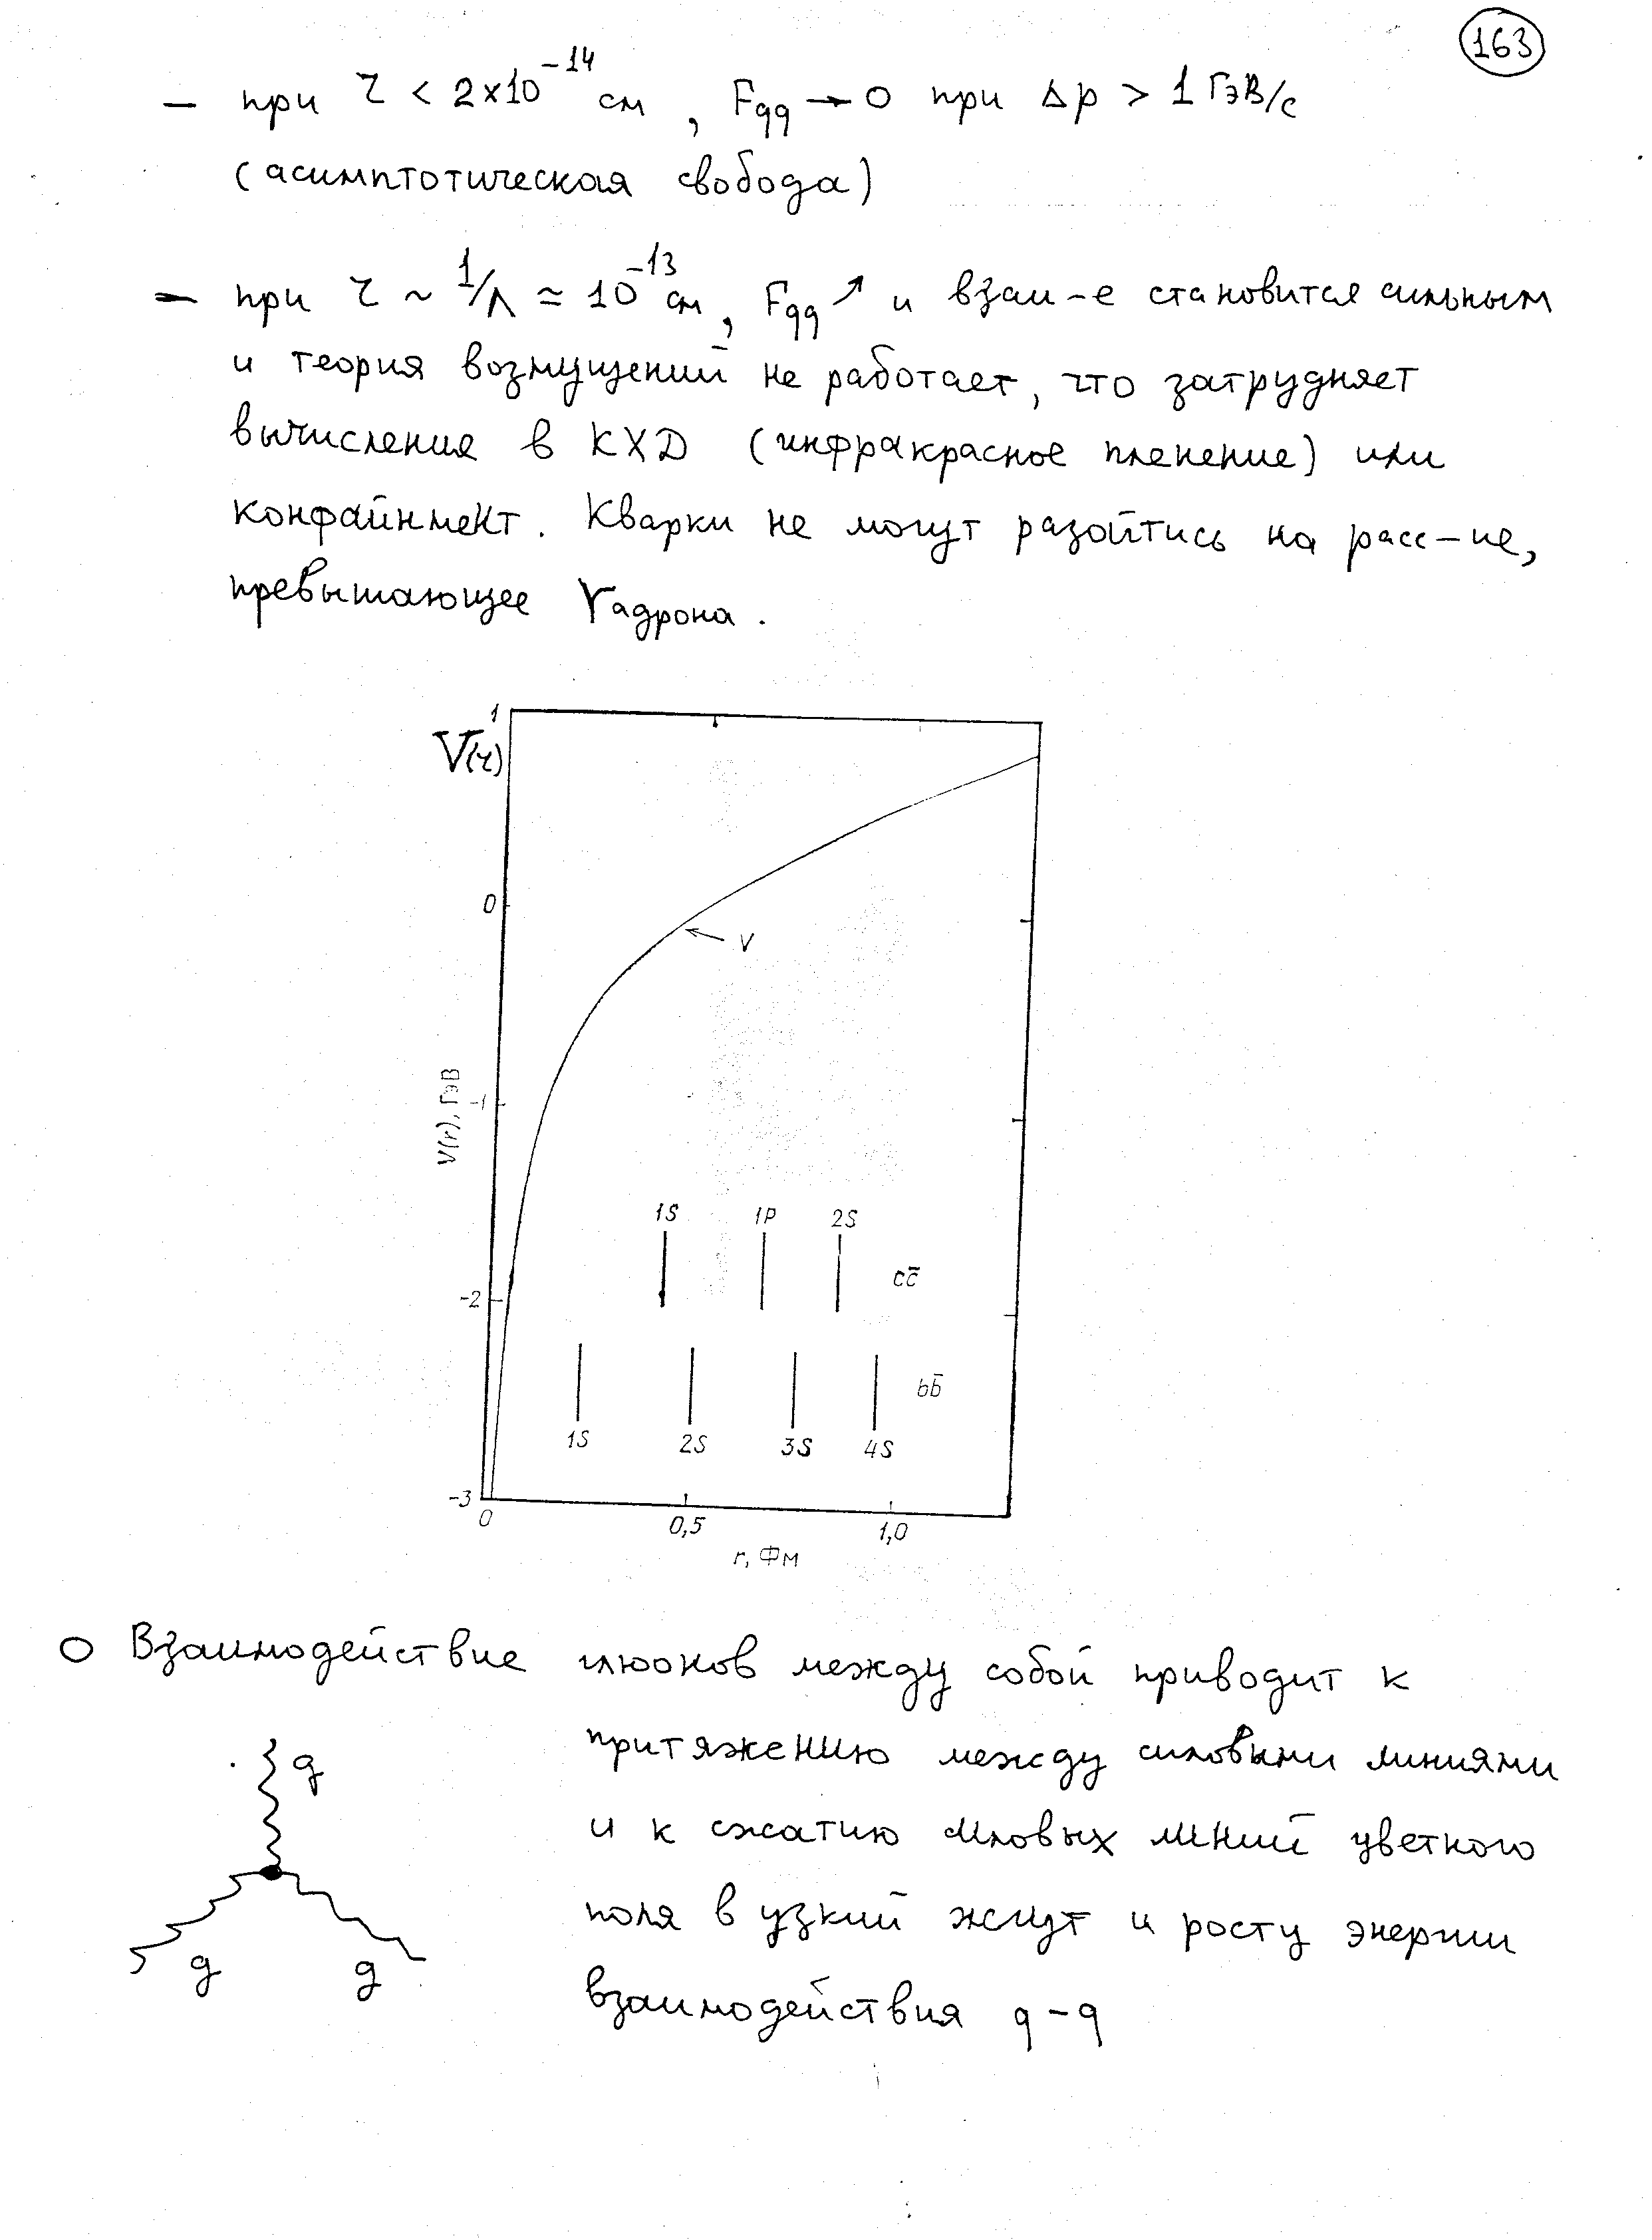 163
– при r < 2×10⁻¹⁴ см, Fqq → 0 при Δp > 1 ГэВ/с
(асимптотическая свобода)
– при r ~ 1/Λ ≃ 10⁻¹³ см, Fqq ↗ и взаи-е становится сильным
и теория возмущений не работает, что затрудняет
вычисления в КХД (инфракрасное пленение) или
конфайнмент. Кварки не могут разойтись на расс-ие,
превышающее rадрона.
1
V(r)
0
V
V(r), ГэВ
-1
1S 1P 2S
-2
cc̄
bb̄
1S 2S 3S 4S
-3
0 0,5 1,0
r, Фм
○ Взаимодействие глюонов между собой приводит к
притяжению между силовыми линиями
g
и к сжатию силовых линий цветного
поля в узкий жгут и росту энергии
g g
взаимодействия q–q